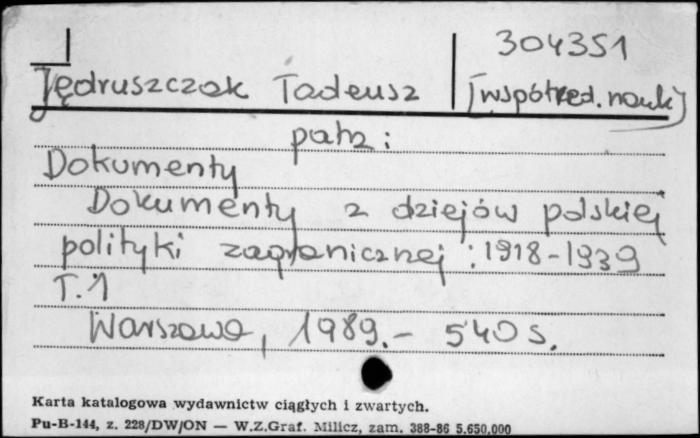 304351
Jędruszczak Tadeusz [współred. nauk]
patrz:
Dokumenty
Dokumenty z dziejów polskiej
polityki zagranicznej : 1918-1939
T.1
Warszawa, 1989.- 540 s.
Karta katalogowa wydawnictw ciągłych i zwartych.
Pu-B-144, z. 228/DW/ON — W.Z.Graf. Milicz, zam. 388-86 5.650.000